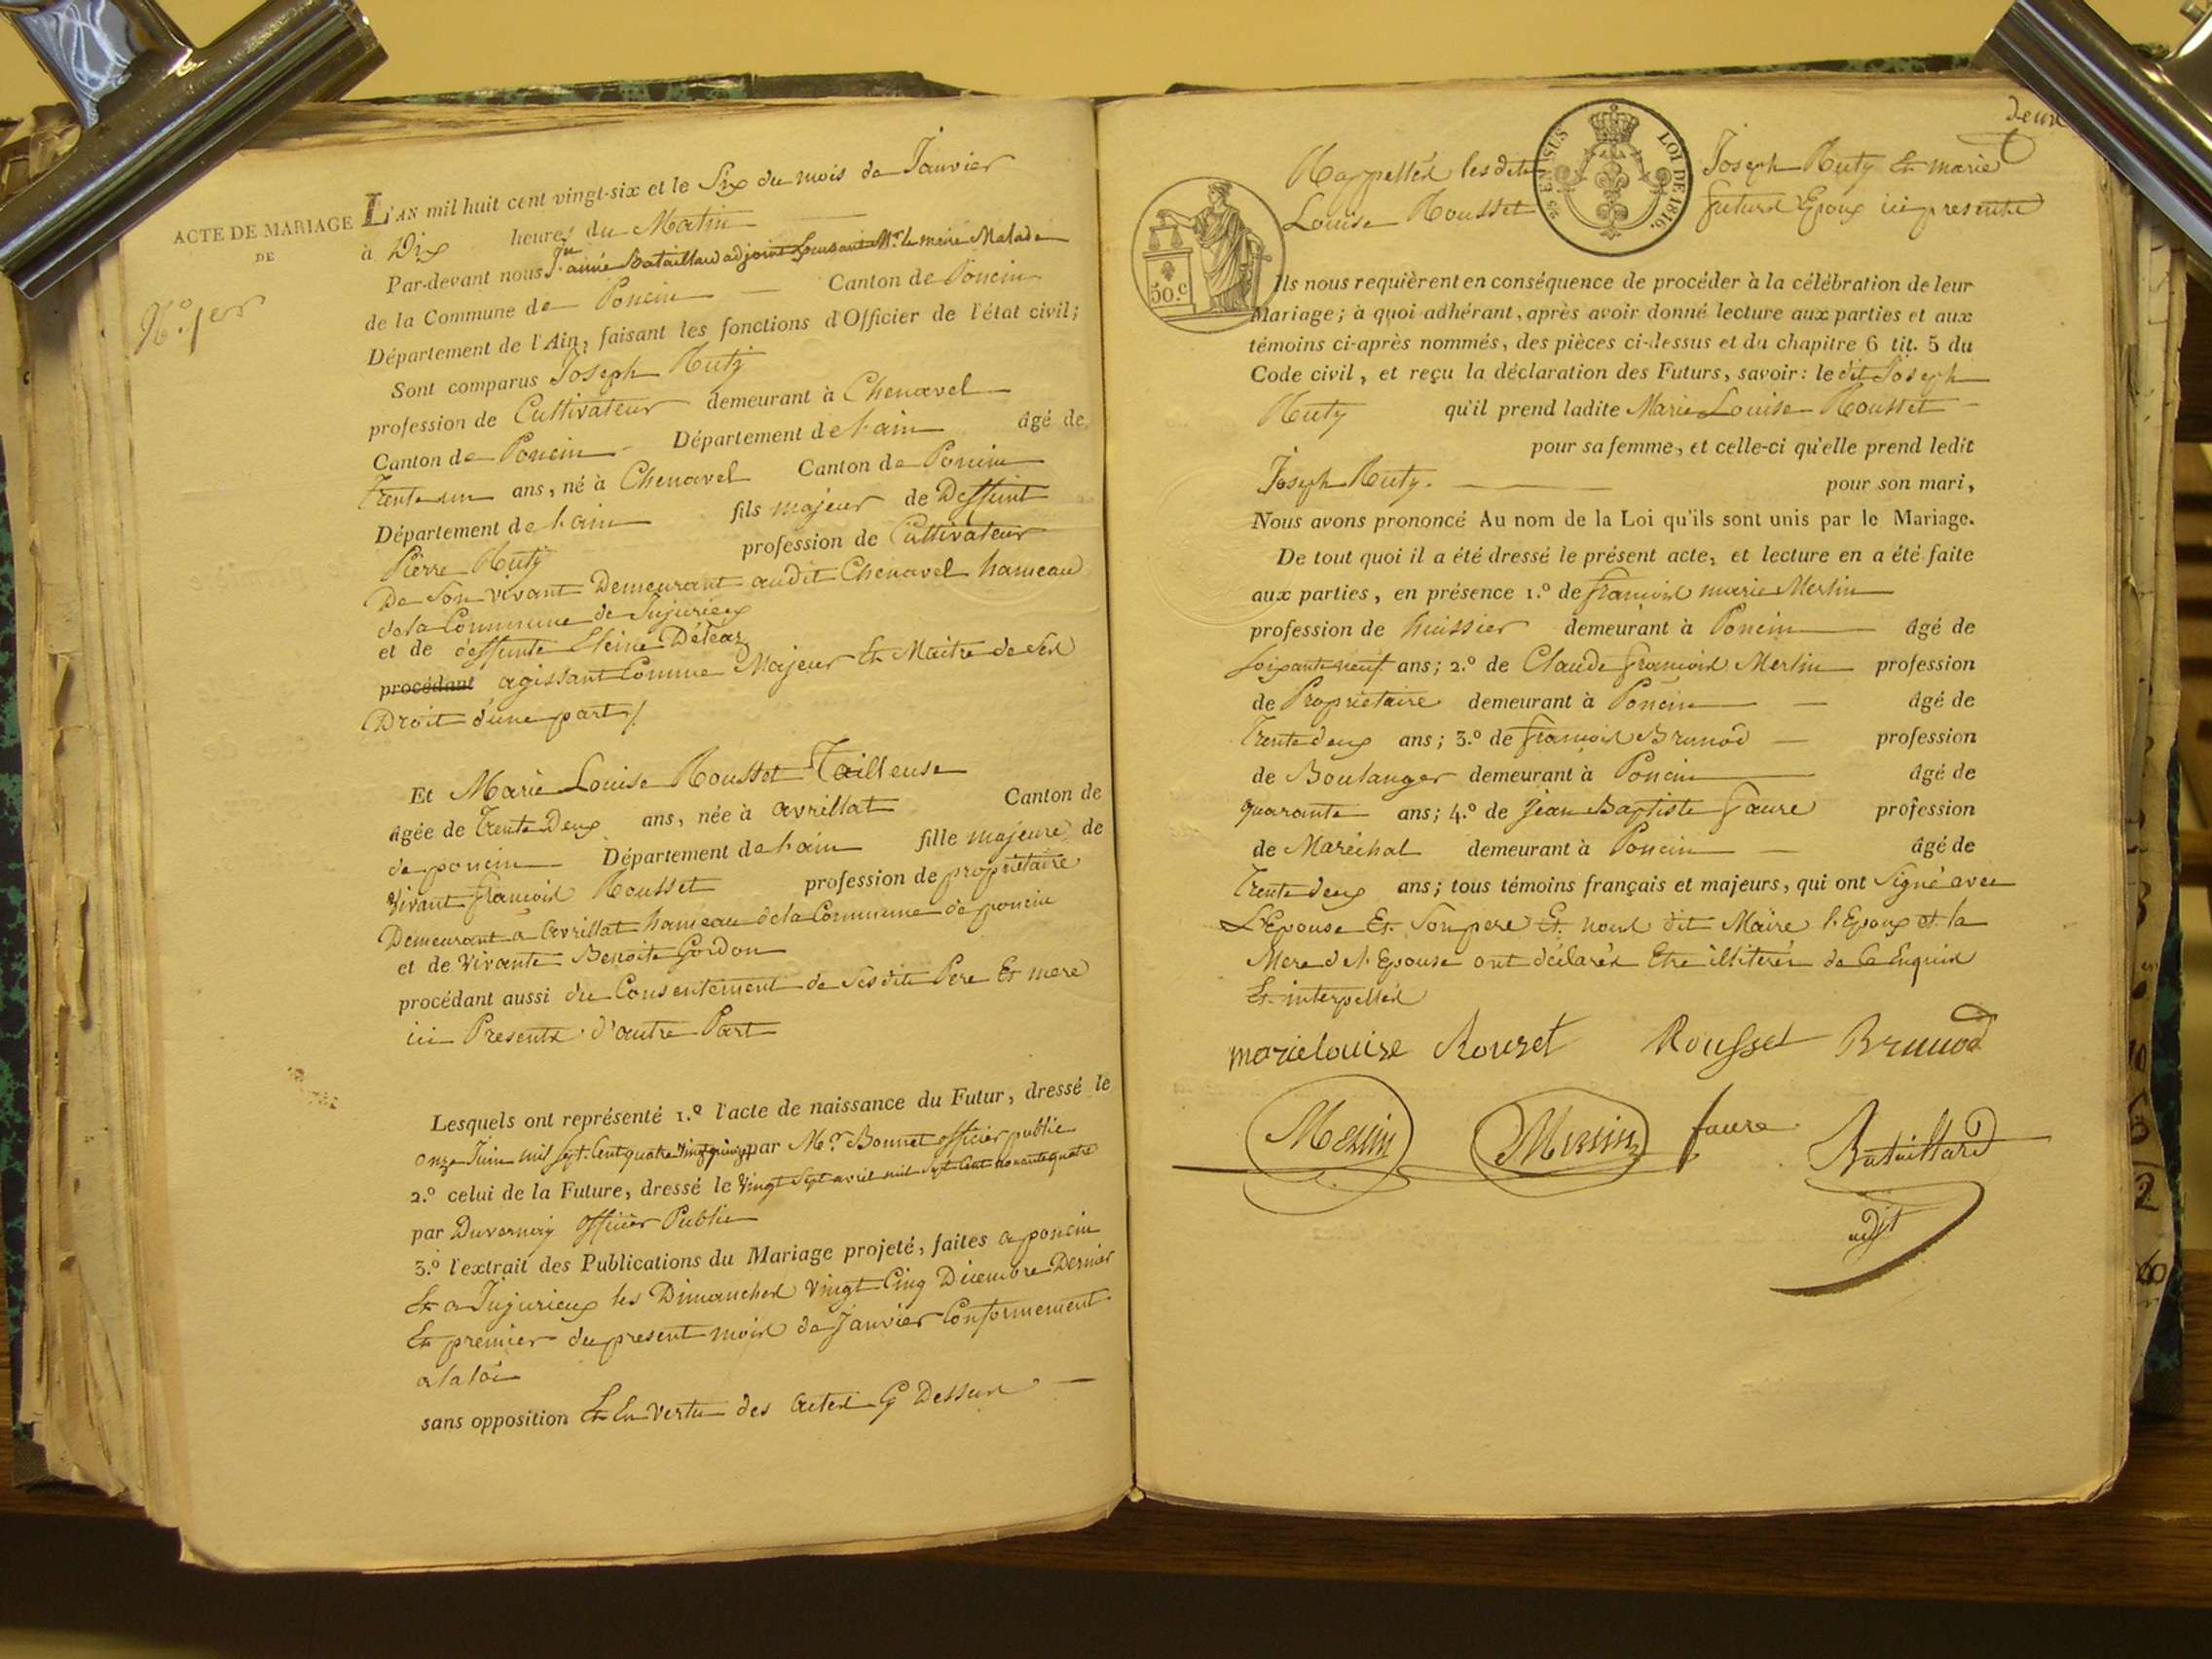 ACTE DE MARIAGE
DE
N.º 1er
L'AN mil huit cent vingt-six et le Six du mois de Janvier
à Dix heures du Matin
Par-devant nous Jn aimé Bataillard adjoint Mr. le maire Malade
de la Commune de Poncin Canton de Poncin
Département de l'Ain, faisant les fonctions d'Officier de l'état civil;
Sont comparus Joseph Ruty
profession de Cultivateur demeurant à Chenavel
Canton de Poncin Département de l'ain âgé de
Trente un ans, né à Chenavel Canton de Poncin
Département de l'ain fils majeur de Deffunt
Pierre Ruty profession de Cultivateur
De Son vivant Demeurant audit Chenavel hameau
de la Commune de Jujurieux
et de deffunte Déléaz
procédant agissant Comme Majeur et Maitre de Ses
Droit d'une part /.
Et Marie Louise Rousset Tailleuse
âgée de Trente Deux ans, née à avrillat Canton de
de poncin Département de l'ain fille majeure de
vivant françois Rousset profession de propriétaire
Demeurant a avrillat hameau de la Commune de poncin
et de Vivante Benoite Gordon
procédant aussi du Consentement de Ses dits Pere Et mere
ici Presents d'autre Part
Lesquels ont représenté 1.º l'acte de naissance du Futur, dressé le
onze Juin mil Sept Cent quatre vingt quinze par Mr. Bonnet officier public
2.º celui de la Future, dressé le Vingt Sept avril mil Sept Cent nonante quatre
par Duvernay officier Public
3.º l'extrait des Publications du Mariage projeté, faites a poncin
Et a Jujurieux les Dimanches Vingt Cinq Decembre Dernier
Et premier du present mois de Janvier Conformement
a la loi
sans opposition Et En Vertu des actes Cy Dessus
deux
Rappellés les dits Joseph Ruty Et marie
Louise Rousset futurs Epoux ici presents
25 EN SUS LOI DE 1816.
50.c
Ils nous requièrent en conséquence de procéder à la célébration de leur
Mariage; à quoi adhérant, après avoir donné lecture aux parties et aux
témoins ci-après nommés, des pièces ci-dessus et du chapitre 6 tit. 5 du
Code civil, et reçu la déclaration des Futurs, savoir: le dit Joseph
Ruty qu'il prend ladite Marie Louise Rousset
pour sa femme, et celle-ci qu'elle prend ledit
Joseph Ruty. pour son mari,
Nous avons prononcé Au nom de la Loi qu'ils sont unis par le Mariage.
De tout quoi il a été dressé le présent acte, et lecture en a été faite
aux parties, en présence 1.º de françois marie Merlin
profession de huissier demeurant à Poncin âgé de
Soixante neuf ans; 2.º de Claude françois Merlin profession
de Propriétaire demeurant à Poncin âgé de
Trente deux ans; 3.º de françois Brunod profession
de Boulanger demeurant à Poncin âgé de
quarante ans; 4.º de Jean Baptiste faure profession
de Maréchal demeurant à Poncin âgé de
Trente deux ans; tous témoins français et majeurs, qui ont Signé avec
L'Epouse Et Son pere Et nous dit Maire l'Epoux et la
Mere de l'Epouse ont déclarés Etre illiterés de Ce Enquis
Et interpellés
marie louise Rouset Rousset Brunod
Merlin Merlin faure Bataillard
adjt